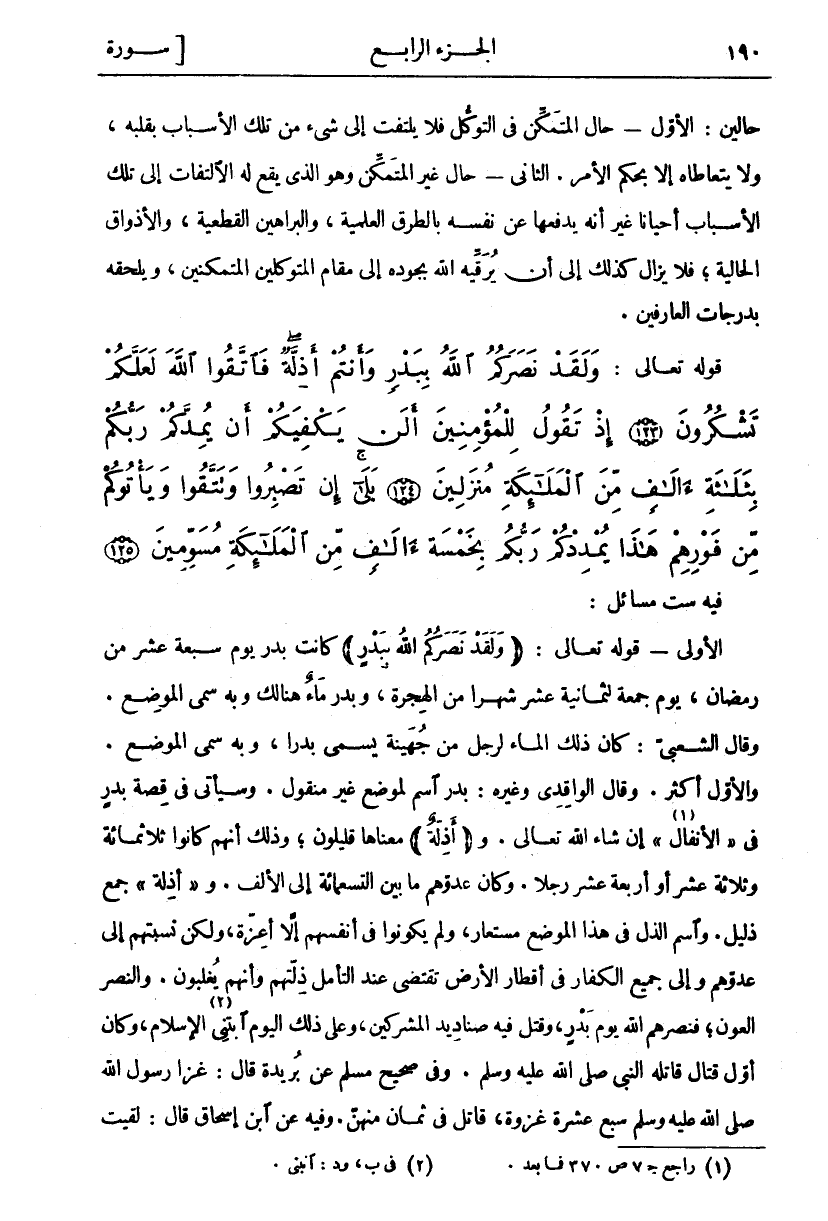 ١٩٠ الجـزء الرابـع [ ســورة
حالين : الأوّل — حال المتَمكِّن فى التوكّل فلا يلتفت إلى شىء من تلك الأسـباب بقلبه ،
ولا يتعاطاه إلا بحكم الأمر . الثانى — حال غير المتَمكِّن وهو الذى يقع له الآلتفات إلى تلك
الأسـباب أحيانا غير أنه يدفعها عن نفسـه بالطرق العلمية ، والبراهين القطعية ، والأذواق
الحالية ؛ فلا يزال كذلك إلى أن يُرَقِّيه الله بجوده إلى مقام المتوكلين المتمكنين ، ويلحقه
بدرجات العارفين .
قوله تعـالى : وَلَقَـدْ نَصَرَكُمُ ٱللَّهُ بِبَدْرٍ وَأَنتُمْ أَذِلَّةٌ ۖ فَٱتَّقُوا ٱللَّهَ لَعَلَّكُمْ
تَشْكُرُونَ ﴿١٢٣﴾ إِذْ تَقُولُ لِلْمُؤْمِنِينَ أَلَن يَكْفِيَكُمْ أَن يُمِدَّكُمْ رَبُّكُم
بِثَلَـٰثَةِ ءَالَـٰفٍ مِّنَ ٱلْمَلَـٰٓئِكَةِ مُنزَلِينَ ﴿١٢٤﴾ بَلَىٰٓ ۚ إِن تَصْبِرُوا وَتَتَّقُوا وَيَأْتُوكُم
مِّن فَوْرِهِمْ هَـٰذَا يُمْدِدْكُمْ رَبُّكُم بِخَمْسَةِ ءَالَـٰفٍ مِّنَ ٱلْمَلَـٰٓئِكَةِ مُسَوِّمِينَ ﴿١٢٥﴾
فيه ست مسائل :
الأولى — قوله تعـالى : ﴿ وَلَقَدْ نَصَرَكُمُ اللهُ بِبَدْرٍ ﴾ كانت بدر يوم سـبعة عشر من
رمضان ، يوم جمعة لثمـانية عشر شهـرا من الهجرة ، وبدر مَاءٌ هنالك وبه سمى الموضع .
وقال الشـعبىّ : كان ذلك المـاء لرجل من جُهَينة يسـمى بدرا ، وبه سمى الموضـع .
والأوّل أكثر . وقال الواقِدى وغيره : بدر آسم لموضع غير منقول . وسـيأتى فى قِصة بدرٍ
فى « الأنفال (١) » إن شاء الله تعـالى . و﴿ أَذِلَّةٌ ﴾ معناها قليلون ؛ وذلك أنهم كانوا ثلاثمـائة
وثلاثة عشر أو أربعة عشر رجلا . وكان عدوّهم ما بين التسعمائة إلى الألف . و« أذلة » جمع
ذليل . وآسم الذل فى هذا الموضع مستعار، ولم يكونوا فى أنفسهم إلّا أعِزّة، ولكن نسبتهم إلى
عدوّهم وإلى جميع الكفار فى أقطار الأرض تقتضى عند التأمل ذِلّتهم وأنهم يُغلبون . والنصر
العون؛ فنصرهم الله يوم بَدْرٍ، وقتل فيه صناديد المشركين، وعلى ذلك اليوم آبتُنِى (٢) الإسلام، وكان
أوّل قتال قاتله النبى صلى الله عليه وسلم . وفى صحيح مسلم عن بُريدة قال : غزا رسول الله
صلى الله عليه وسلم سبع عشرة غزوة، قاتل فى ثمـان منهنّ . وفيه عن آبن إسحاق قال : لقيت
(١) راجع جـ ٧ ص ٣٧٠ فـا بعد . (٢) فى ب، ود : آنبنى .